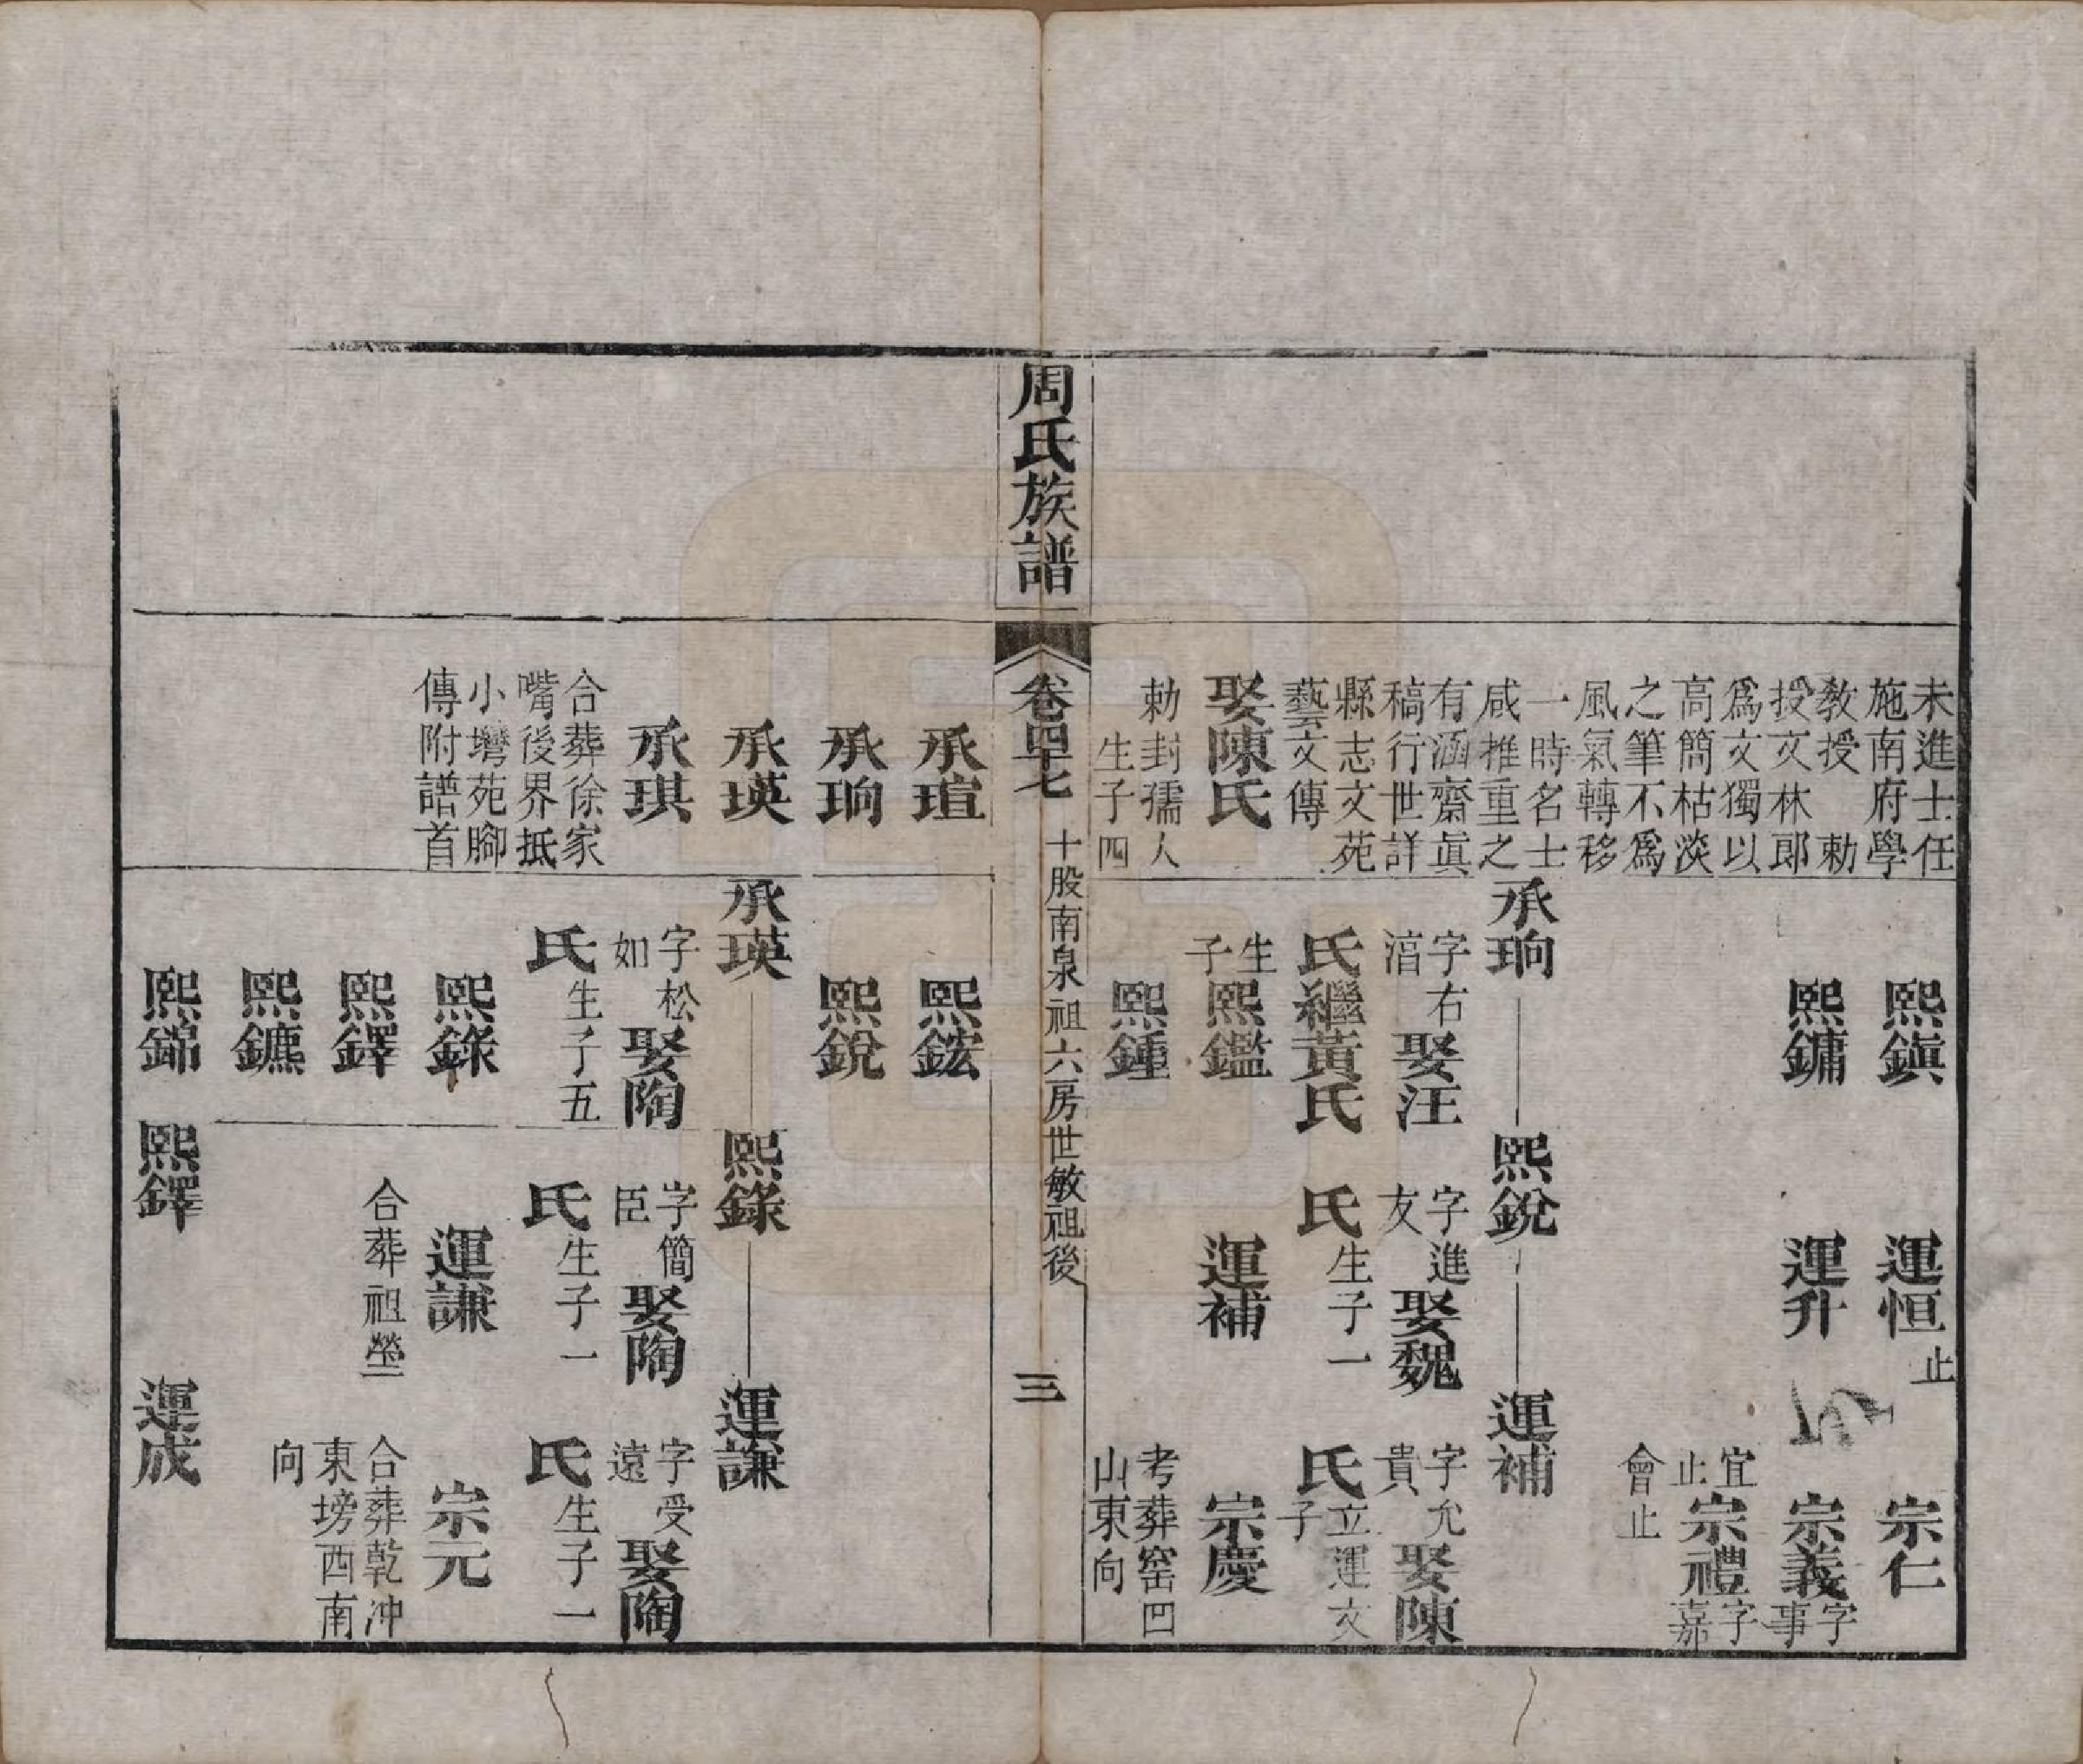 未進士任
施南府學
教授　勅
授文林郎
爲文獨以
高簡枯淡
之筆不爲
風氣轉移
一時名士
咸推重之
有涵齋眞
稿行世詳
縣志文苑
藝文傳
娶陳氏
勅封孺人
生子四
熙鎭
熙鏞
承珦
字右
湆
娶汪
氏繼黃氏
生
子
熙鑑
熙鍾
運恒
止
運升
熙銳
字進
友
娶魏
氏
生子一
運補
宗仁
宗義
字
事
宜
止
宗禮
字
嘉
會止
運補
字允
貴
娶陳
氏
立運文
子
宗慶
考葬窑凹
山東向
周氏族譜
卷四十七
十股南泉祖六房世敏祖後
三
承瑄
承珦
承瑛
承琪
合葬徐家
嘴後界抵
小塆苑腳
傳附譜首
熙鋐
熙銳
承瑛
字松
如
娶陶
氏
生子五
熙錄
熙鐸
熙鑣
熙錦
熙錄
字簡
臣
娶陶
氏
生子一
運謙
合葬祖塋
熙鐸
運謙
字受
遠
娶陶
氏
生子一
宗元
合葬乾冲
東塝西南
向
運成